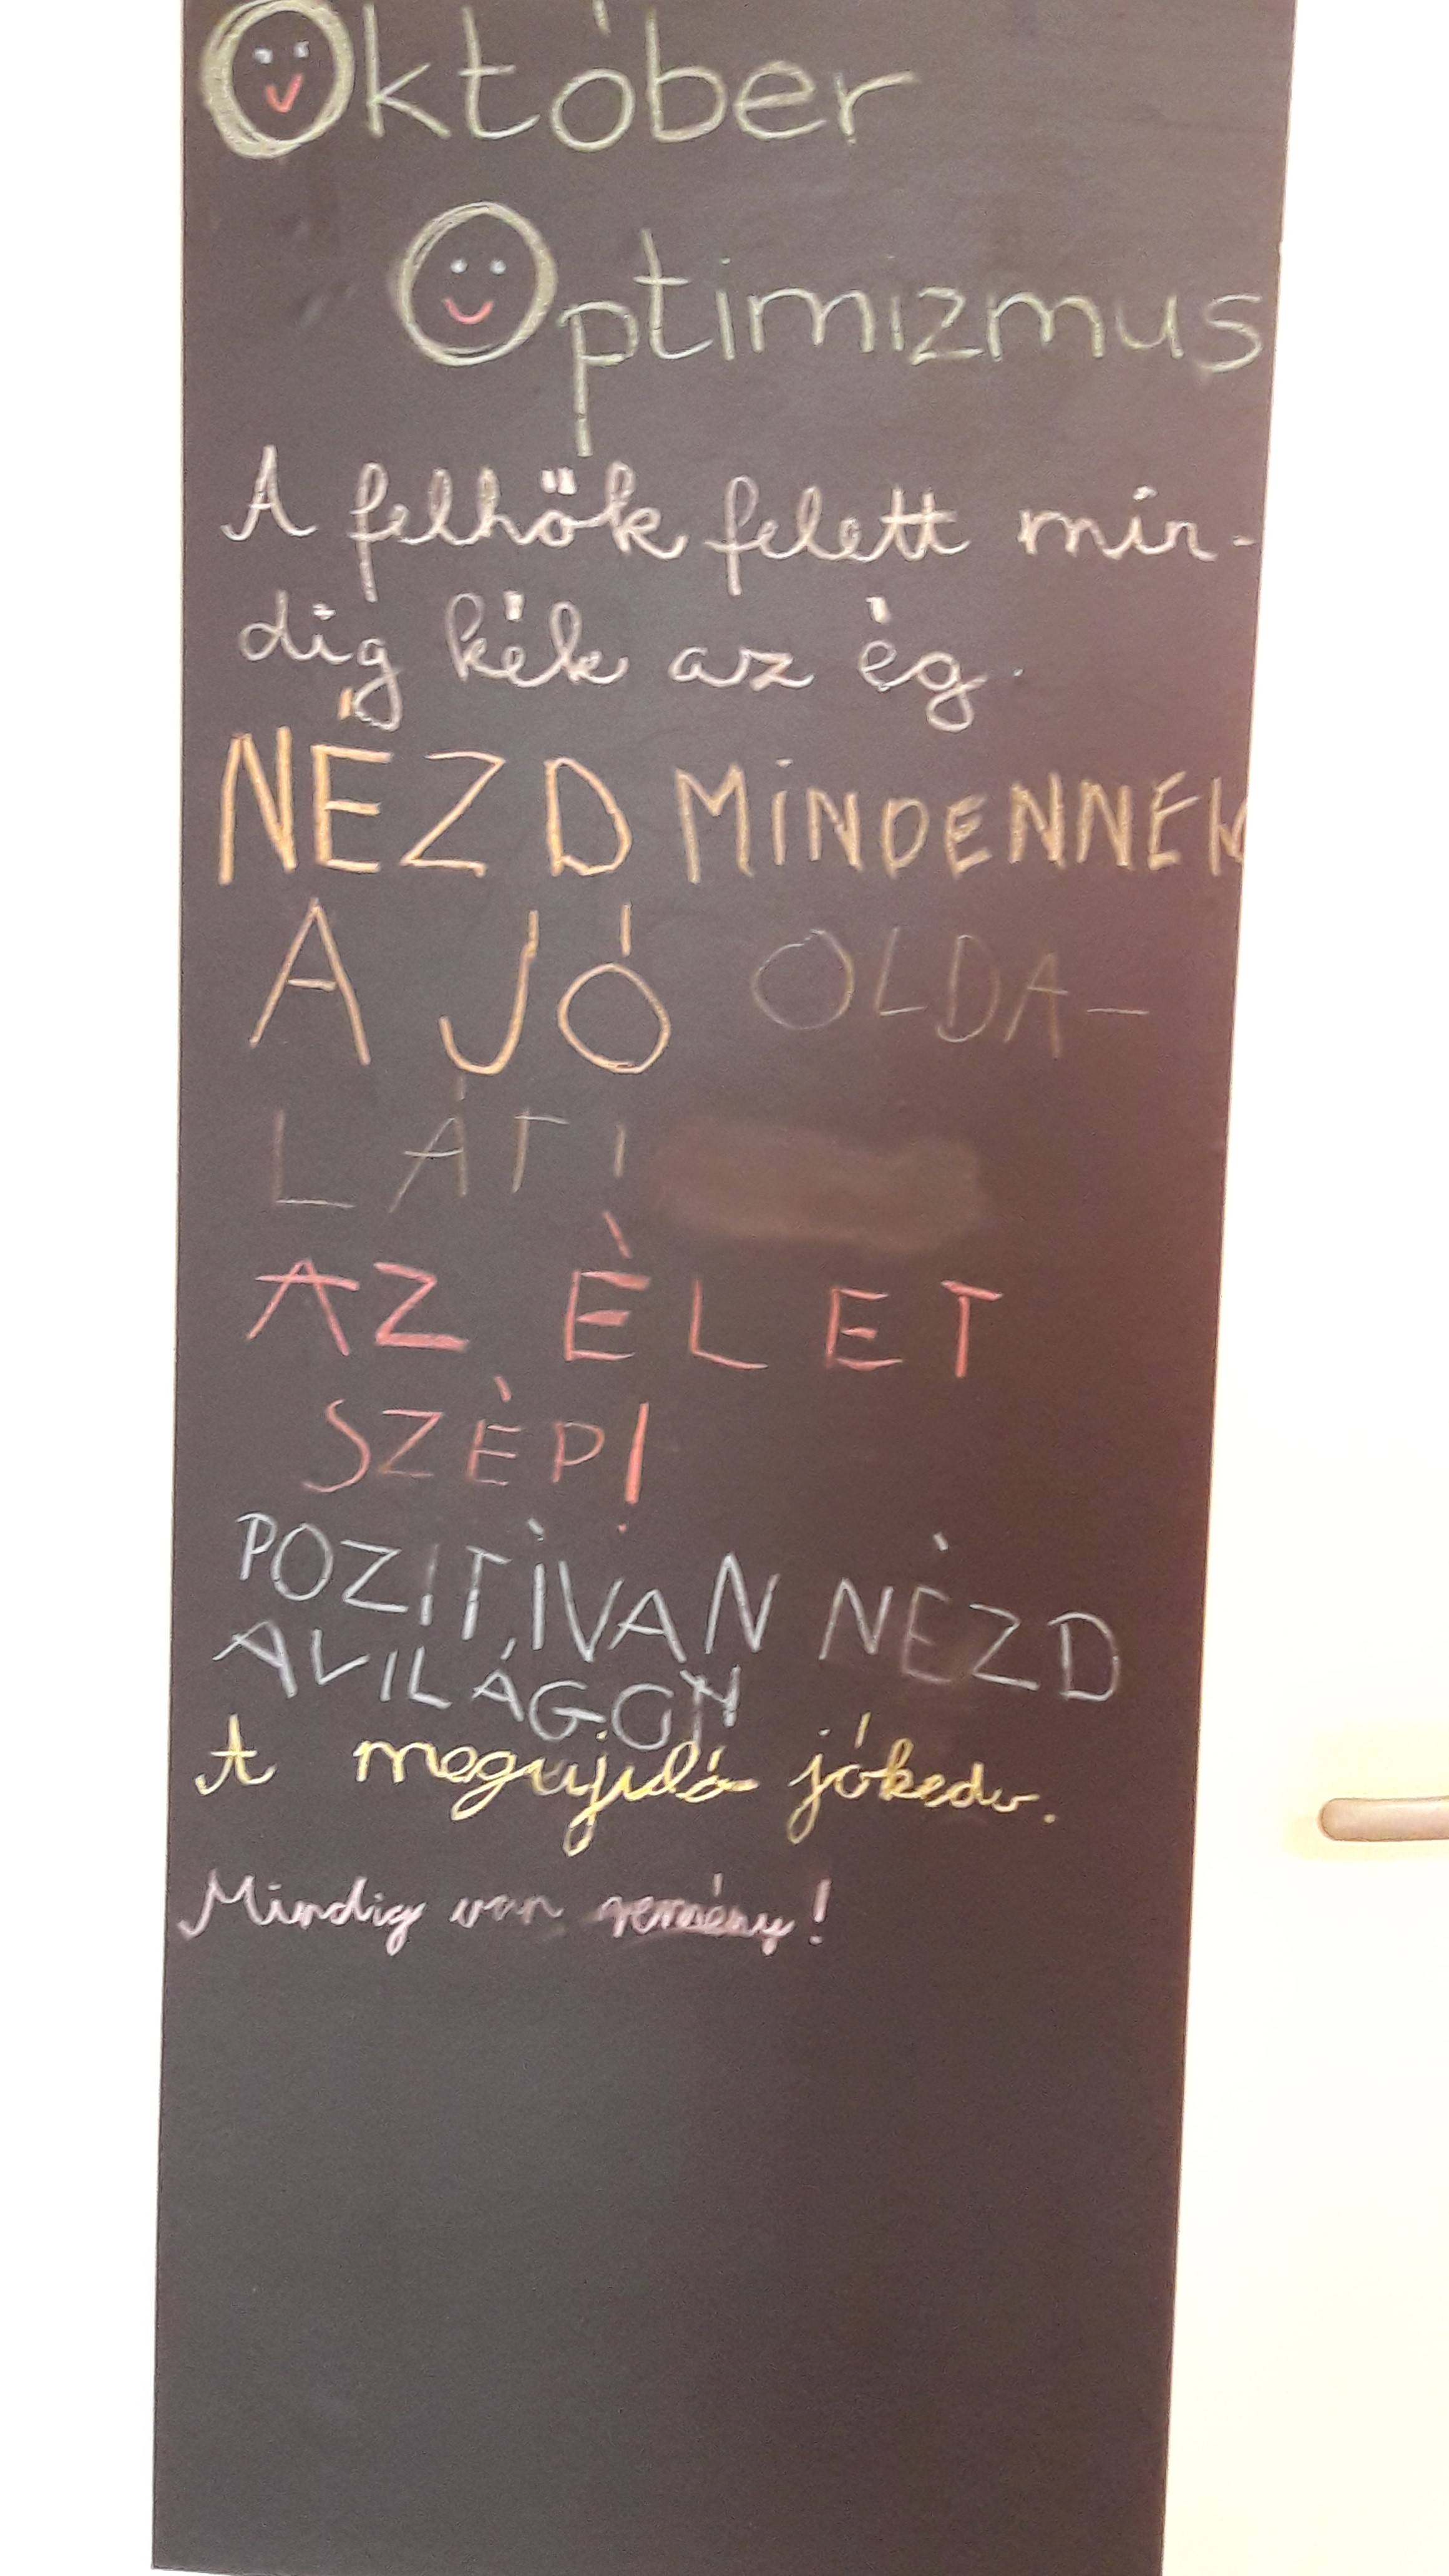 Október
Optimizmus
A felhők felett min-
dig kék az ég.
NÉZD MINDENNEK
A JÓ OLDA-
LÁT!
AZ ÉLET
SZÉP!
POZITÍVAN NÉZD
A VILÁGON
A megujuló jókedv.
Mindig van remény!